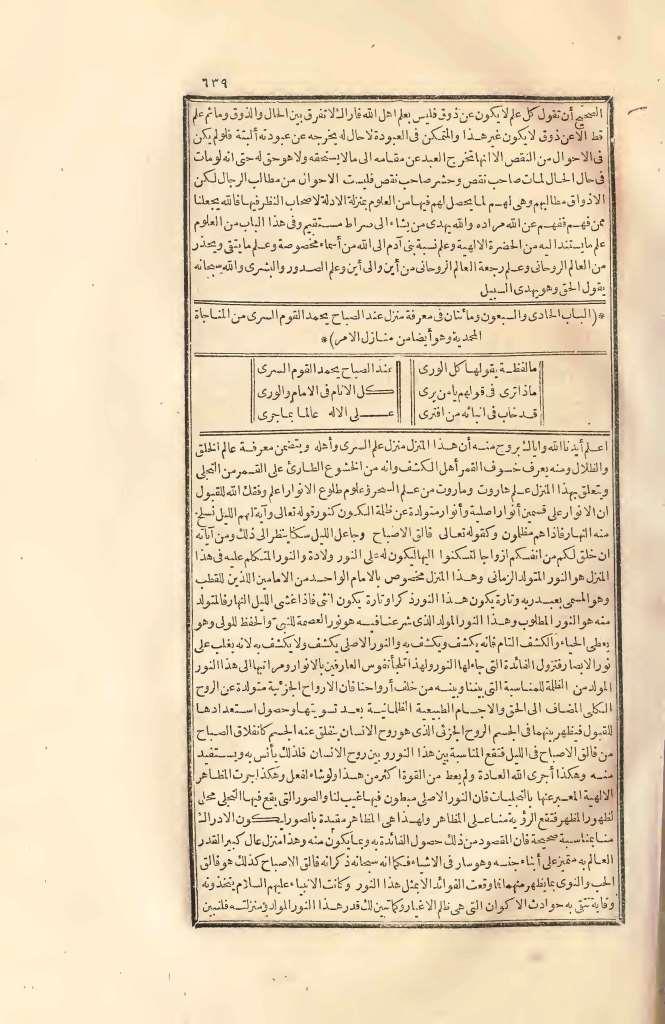 ٦٣٩
الصحيح أن تقول كل علم لا يكون عن ذوق فليس بعلم اهل الله فأراك لا تفرق بين الحال والذوق وما ثم علم
قط الا عن ذوق لا يكون غير هذا والمتمكن فى العبودة لا حال له يخرجه عن عبودته ألبتة فلو لم يكن
فى الاحوال من النقص الا انها تخرج العبد عن مقامه الى ما لا يستحقه ولا هو حق له حتى انه لومات
فى حال الحال لمات صاحب نقص وحشر صاحب نقص فليست الاحوال من مطالب الرجال لكن
الاذواق مطالبهم وهى لهم لما يحصل لهم فيها من العلوم بمنزلة الادلة لاصحاب النظر فيها فالله يجعلنا
ممن فهم ففهم عن الله مراده والله يهدى من يشاء الى صراط مستقيم وفى هذا الباب من العلوم
علم ما يستند اليه من الحضرة الالهية وعلم نسبة بنى آدم الى الله من أسماء مخصوصة وعلم ما يتقى ويحذر
من العالم الروحانى وعلم رجعة العالم الروحانى من أين والى أين وعلم الصدور والبشرى والله سبحانه
يقول الحق وهو يهدى السبيل
*(الباب الحادى والسبعون ومائتان فى معرفة منزل عند الصباح يحمد القوم السرى من المناجاة
المحمدية وهو أيضا من منازل الامر)*
عند الصباح يحمد القوم السرى ما لفظة يقولها كل الورى
كل الانام فى الامام والورى ماذا ترى فى قولهم يا من يرى
على الاله عالما بما جرى قد خاب فى انبائه من افترى
اعلم أيدنا الله واياك بروح منه أن هذا المنزل منزل علم السرى وأهله ويتضمن معرفة عالم الخلق
والظلال ومنه يعرف خسوف القمر أهل الكشف وانه من الخشوع الطارئ على القمر من التجلى
ويتعلق بهذا المنزل علم هاروت وماروت من علم السحر وعلوم طلوع الانوار اعلم وفقك الله للقبول
ان الانوار على قسمين أنوار اصلية وأنوار متولدة عن ظلمة الكون كنور قوله تعالى وآية لهم الليل نسلخ
منه النهار فاذا هم مظلمون وكقوله تعالى فالق الاصباح وجاعل الليل سكنا ينظر الى ذلك ومن آياته
ان خلق لكم من انفسكم ازواجا لتسكنوا اليها ليكون له على النور ولادة والنور المتكلم عليه فى هذا
المنزل هو النور المتولد الزمانى وهذا المنزل مخصوص بالامام الواحد من الامامين اللذين للقطب
وهو المسمى بعبد ربه وتارة يكون هذا النور ذكرا وتارة يكون انثى فاذا غشى الليل النهار فالمتولد
منه هو النور المطلوب وهذا النور المولد الذى شرعنا فيه هو نور العصمة للنبى والحفظ للولى وهو
يعطى الحياء والكشف التام فانه يكشف ويكشف به والنور الاصلى يكشف ولا يكشف به لانه يغلب على
نور الابصار فتزول الفائدة التى جاء لها النور ولهذا تلجأ نفوس العارفين بالانوار ومراتبها الى هذا النور
المولد من الظلمة للمناسبة التى بيننا وبينه من خلف أرواحنا فان الارواح الجزئية متولدة عن الروح
الكلى المضاف الى الحق والاجسام الطبيعية الظلمانية بعد تسويتها وحصول استعدادها
للقبول فيظهر بينهما فى الجسم الروح الجزئى الذى هو روح الانسان ينفلق عنه الجسم كانفلاق الصباح
من فالق الاصباح فى الليل فتقع المناسبة بين هذا النور وبين روح الانسان فلذلك يأنس به ويستفيد
منه وهكذا أجرى الله العادة ولم يعط من القوة اكثر من هذا ولو شاء لفعل وهكذا اجرت المظاهر
الالهية المعبر عنها بالتجليات فان النور الاصلى مبطون فيها غيب لنا والصور التى يقع فيها التجلى محل
لظهور المظهر فتقع الرؤية منا على المظاهر ولهذا هى المظاهر مقيدة بالصور ليكون الادراك
منا بمناسبة صحيحة فان المقصود من ذلك حصول الفائدة به وبما يكون منه وهذا منزل عال كبير القدر
العالم به متميز على أبناء جنسه وهو سار فى الاشياء فكما انه سبحانه ذكر انه فالق الاصباح كذلك هو فالق
الحب والنوى بما يظهر منهما فما وقعت الفوائد الا بمثل هذا النور وكانت الانبياء عليهم السلام يتخذونه
وقاية تتقى به حوادث الاكوان التى هى ظلم الاغيار وكما تبين لك قدر هذا النور المولد ومنزلته فلنبين